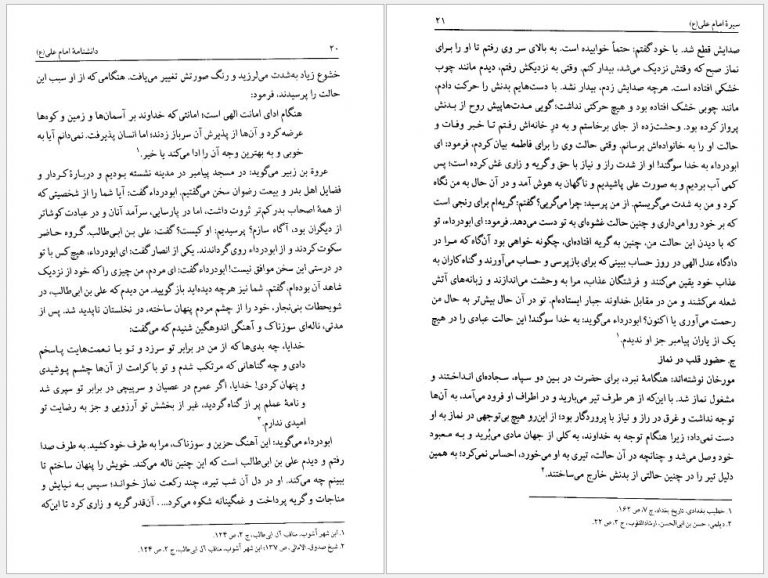 ۲۰
دانشنامهٔ امام علی(ع)
خشوع زیاد به‌شدت می‌لرزید و رنگ صورتش تغییر می‌یافت. هنگامی‌که از او سبب این
حالت را پرسیدند، فرمود:
هنگام ادای امانت الهی است؛ امانتی که خداوند بر آسمان‌ها و زمین و کوه‌ها
عرضه کرد و آن‌ها از پذیرش آن سرباز زدند؛ اما انسان پذیرفت. نمی‌دانم آیا به
خوبی و به بهترین وجه آن را ادا می‌کند یا خیر.۱
عروة بن زبیر می‌گوید: در مسجد پیامبر در مدینه نشسته بودیم و دربارهٔ کردار و
فضایل اهل بدر و بیعت رضوان سخن می‌گفتیم. ابودرداء گفت: آیا شما را از شخصیتی که
از همهٔ اصحاب بدر کم‌تر ثروت داشت، اما در پارسایی، سرآمد آنان و در عبادت کوشاتر
از دیگران بود، آگاه سازم؟ پرسیدیم: او کیست؟ گفت: علی بن ابی‌طالب. گروه حاضر
سکوت کردند و از ابودرداء روی گرداندند. یکی از انصار گفت: ای ابودرداء، هیچ‌کس با تو
در درستی این سخن موافق نیست! ابودرداء گفت: ای مردم، من چیزی را که خود از نزدیک
شاهد آن بوده‌ام، گفتم. شما نیز هرچه دیده‌اید بازگویید. من دیدم که علی بن ابی‌طالب، در
شویحطات بنی‌نجار، خود را از چشم مردم پنهان ساخته، در نخلستان ناپدید شد. پس از
مدتی، ناله‌ای سوزناک و آهنگی اندوهگین شنیدم که می‌گفت:
خدایا، چه بدی‌ها که از من در برابر تو سرزد و تو با نعمت‌هایت پاسخم
دادی و چه گناهانی که مرتکب شدم و تو با کرامت از آن‌ها چشم پوشیدی
و پنهان کردی! خدایا، اگر عمرم در عصیان و سرپیچی در برابر تو سپری شد
و نامهٔ عملم پر از گناه گردید، غیر از بخشش تو آرزویی و جز به رضایت تو
امیدی ندارم.۲
ابودرداء می‌گوید: این آهنگ حزین و سوزناک، مرا به طرف خود کشید. به طرف صدا
رفتم و دیدم علی بن ابی‌طالب است که این چنین ناله می‌کند. خویش را پنهان ساختم تا
ببینم چه می‌کند. او در دل آن شب تیره، چند رکعت نماز خواند؛ سپس به نیایش و
مناجات و گریه پرداخت و غمگینانه شکوه می‌کرد.... آن‌قدر گریه و زاری کرد تا این‌که
۱. ابن شهر آشوب، مناقب آل ابی‌طالب، ج ۲، ص ۱۲۴.
۲. شیخ صدوق، الامالی، ص ۱۳۷؛ ابن شهر آشوب، مناقب آل ابی‌طالب، ج ۲، ص ۱۲۴.
سیرهٔ امام علی(ع)
۲۱
صدایش قطع شد. با خود گفتم: حتماً خوابیده است. به بالای سر وی رفتم تا او را برای
نماز صبح که وقتش نزدیک می‌شد، بیدار کنم. وقتی به نزدیکش رفتم، دیدم مانند چوب
خشکی افتاده است. هرچه صدایش زدم، بیدار نشد. با دست‌هایم بدنش را حرکت دادم،
مانند چوبی خشک افتاده بود و هیچ حرکتی نداشت؛ گویی مدت‌ها پیش روح از بدنش
پرواز کرده بود. وحشت‌زده از جای برخاستم و به در خانه‌اش رفتم تا خبر وفات و
حالت او را به خانواده‌اش برسانم. وقتی حالت وی را برای فاطمه بیان کردم، فرمود: ای
ابودرداء به خدا سوگند! او از شدت راز و نیاز با حق و گریه و زاری غش کرده است؛ پس
کمی آب بردیم و به صورت علی پاشیدیم و ناگهان به هوش آمد و در آن حال به من نگاه
کرد و من به شدت می‌گریستم. از من پرسید: چرا می‌گریی؟ گفتم: گریه‌ام برای رنجی است
که بر خود روا می‌داری و چنین حالت غشوه‌ای به تو دست می‌دهد. فرمود: ای ابودرداء، تو
که با دیدن این حالت من، چنین به گریه افتاده‌ای، چگونه خواهی بود آن‌گاه که مرا در
دادگاه عدل الهی در روز حساب ببینی که برای بازپرسی و حساب می‌آورند و گناه‌کاران به
عذاب خود یقین می‌کنند و فرشتگان عذاب، مرا به وحشت می‌اندازند و زبانه‌های آتش
شعله می‌کشند و من در مقابل خداوند جبار ایستاده‌ام. تو در آن حال بیش‌تر به حال من
رحمت می‌آوری یا اکنون؟ ابودرداء می‌گوید: به خدا سوگند! این حالت عبادی را در هیچ
یک از یاران پیامبر جز او ندیدم.۱
ج. حضور قلب در نماز
مورخان نوشته‌اند: هنگامهٔ نبرد، برای حضرت در بین دو سپاه، سجاده‌ای انداختند و
مشغول نماز شد. با این‌که از هر طرف تیر می‌بارید و در اطراف او فرود می‌آمد، به آن‌ها
توجه نداشت و غرق در راز و نیاز با پروردگار بود؛ از این‌رو هیچ بی‌توجهی در نماز به او
دست نمی‌داد؛ زیرا هنگام توجه به خداوند، به کلی از جهان مادی می‌بُرید و به معبود
خود وصل می‌شد و چنانچه در آن حالت، تیری به او می‌خورد، احساس نمی‌کرد؛ به همین
دلیل تیر را در چنین حالتی از بدنش خارج می‌ساختند.۲
۱. خطیب بغدادی، تاریخ بغداد، ج ۷، ص ۱۶۲.
۲. دیلمی، حسن بن ابی‌الحسن، ارشادالقلوب، ج ۲، ص ۲۲.